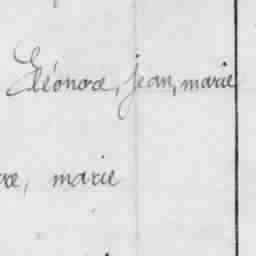 Éléonore, jean, marie
marie